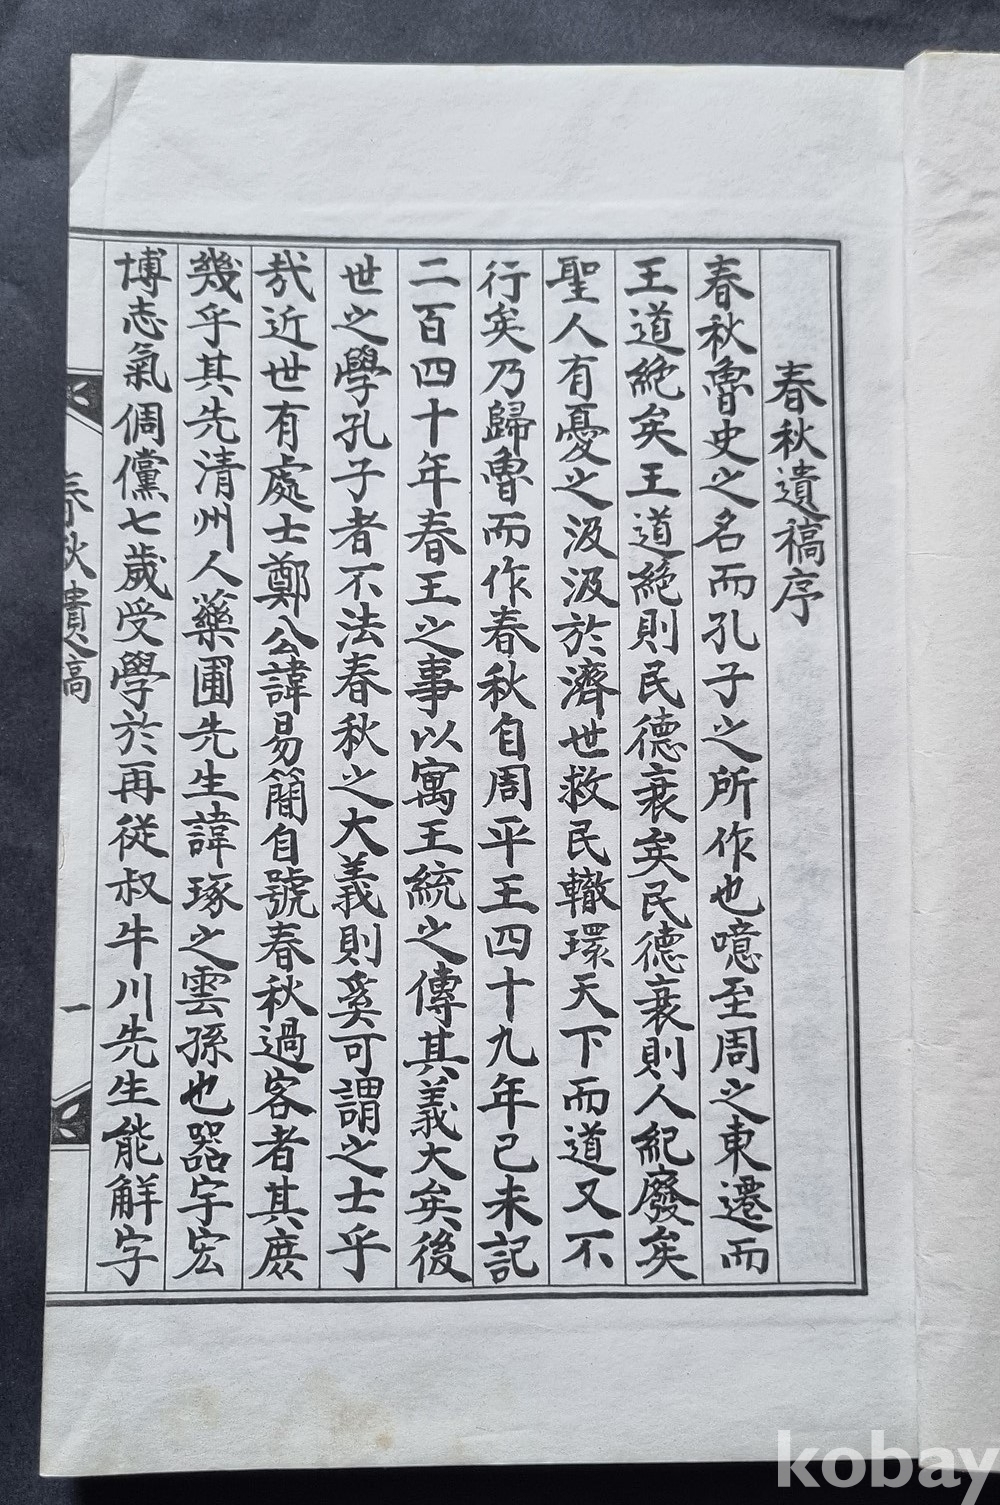 春秋遺稿序
春秋魯史之名而孔子之所作也噫至周之東遷而
王道絶矣王道絶則民德衰矣民德衰則人紀廢矣
聖人有憂之汲汲於濟世救民轍環天下而道又不
行矣乃歸魯而作春秋自周平王四十九年己未記
二百四十年春王之事以寓王統之傳其義大矣後
世之學孔子者不法春秋之大義則奚可謂之士乎
㢤近世有處士鄭公諱易簡自號春秋過客者其庶
幾乎其先清州人藥圃先生諱琢之雲孫也器宇宏
博志氣倜儻七歲受學於再從叔牛川先生能解字
春秋遺稿
一
kobay